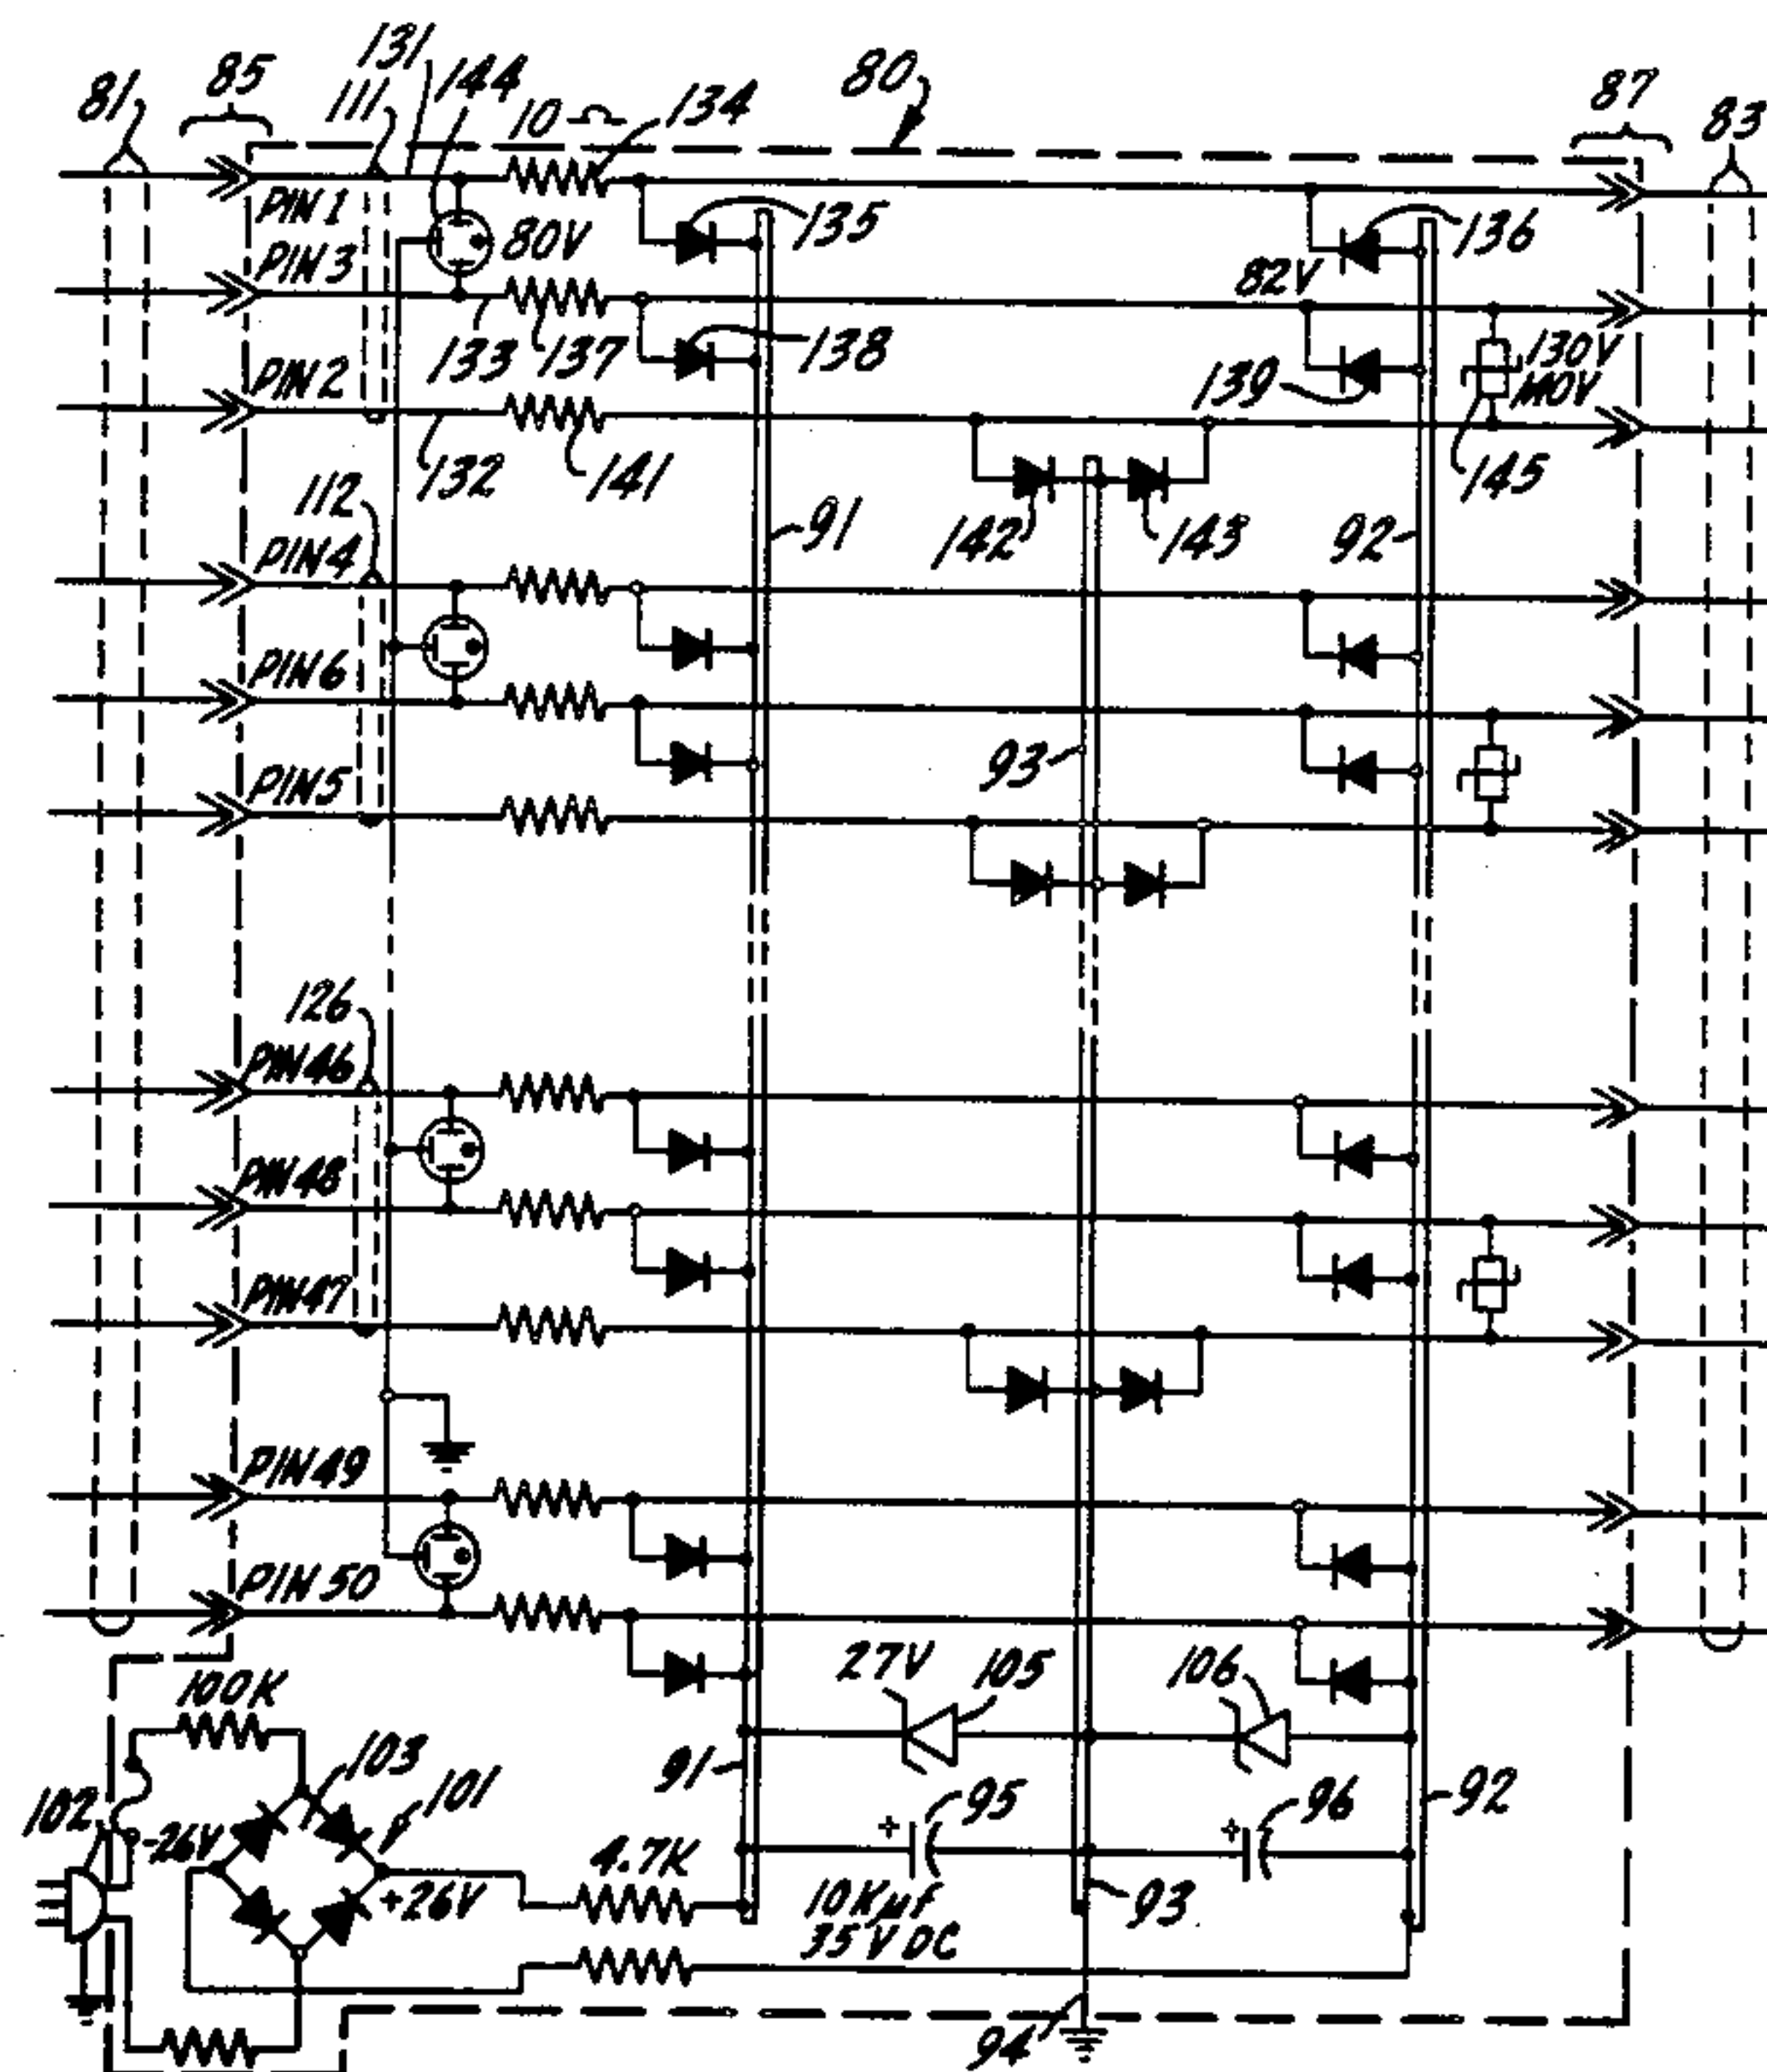 81
85
111
131
144
10 Ω
134
80
87
83
PIN 1
80V
135
136
PIN 3
82V
133
137
138
139
130V
MOV
PIN 2
132
141
142
143
145
91
92
112
PIN 4
PIN 6
93
PIN 5
126
PIN 46
PIN 48
PIN 47
PIN 49
PIN 50
100K
27V
105
106
103
101
91
95
96
92
102
-26V
+26V
4.7K
10Kµf
35V DC
93
94